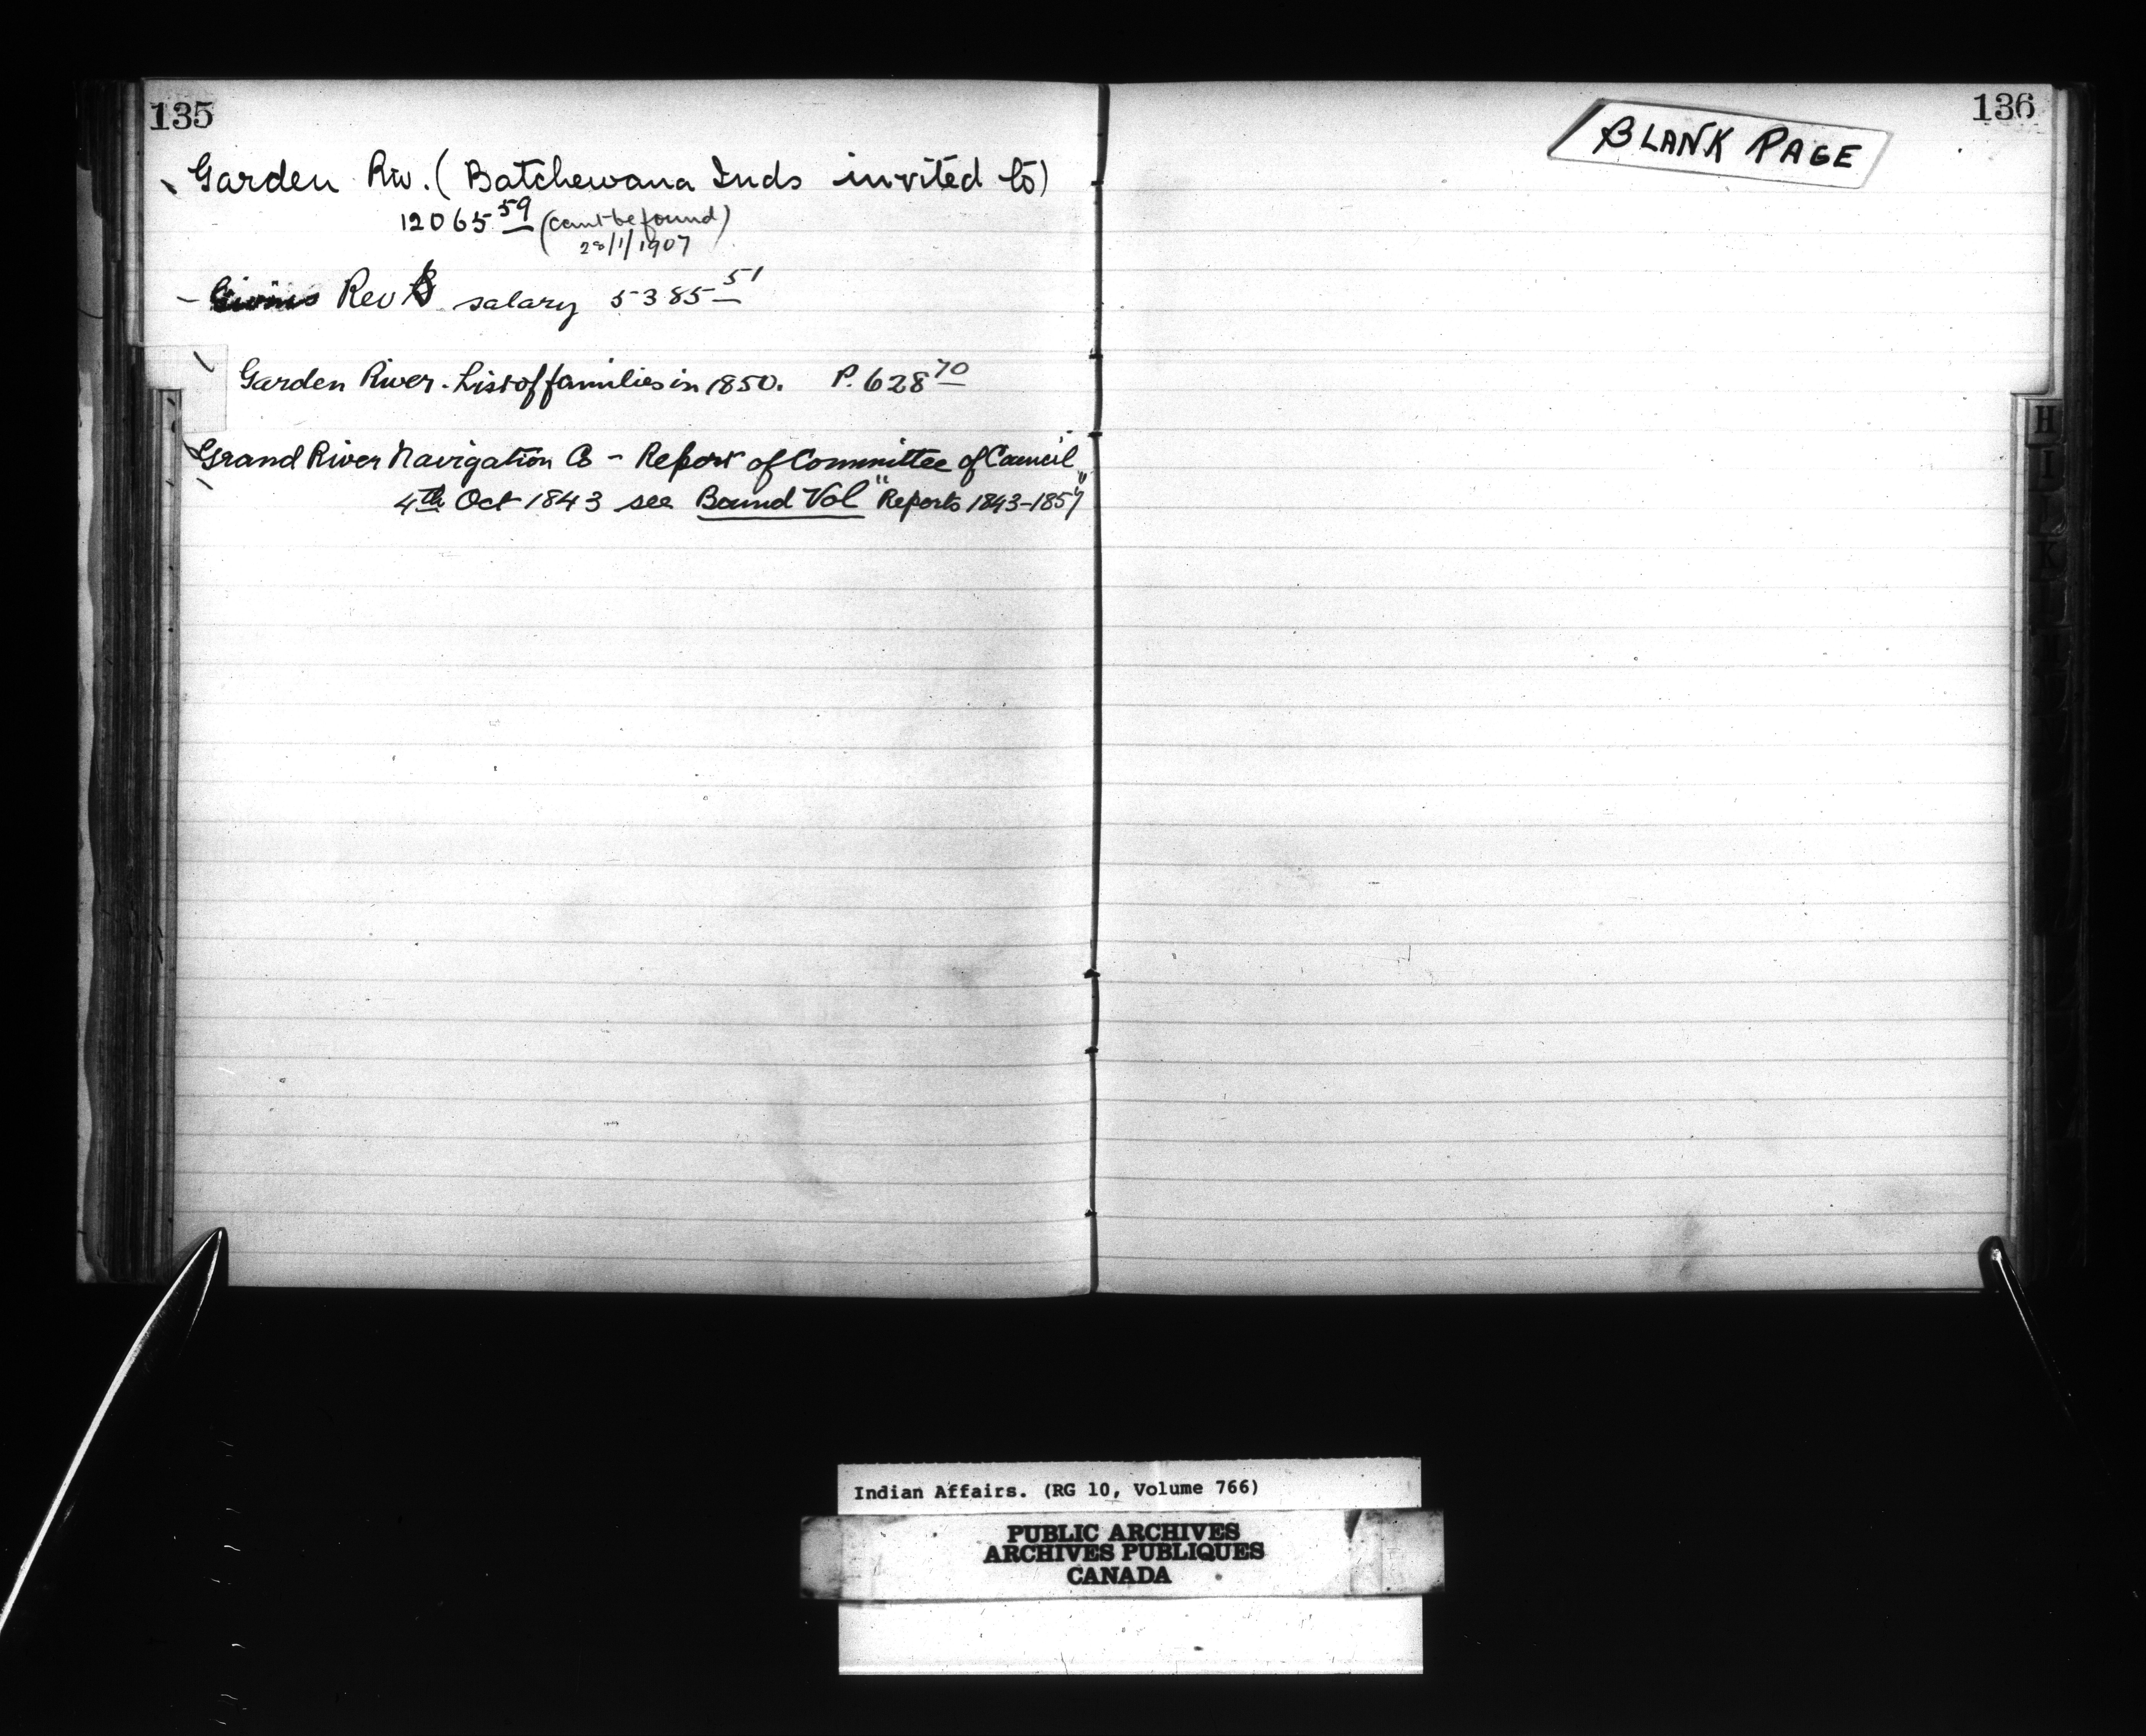 135
Garden Riv. (Batchewana Inds invited to)
12065 59 (cant be found)
28/1/1907
- Givins Rev S salary 5385 51
Garden River. List of families in 1850. P. 628 70
Grand River Navigation Co - Report of Committee of Council
4th Oct 1843 see Bound Vol "Reports 1843-1857"
136
BLANK PAGE
H
I
K
Indian Affairs. (RG 10, Volume 766)
PUBLIC ARCHIVES
ARCHIVES PUBLIQUES
CANADA